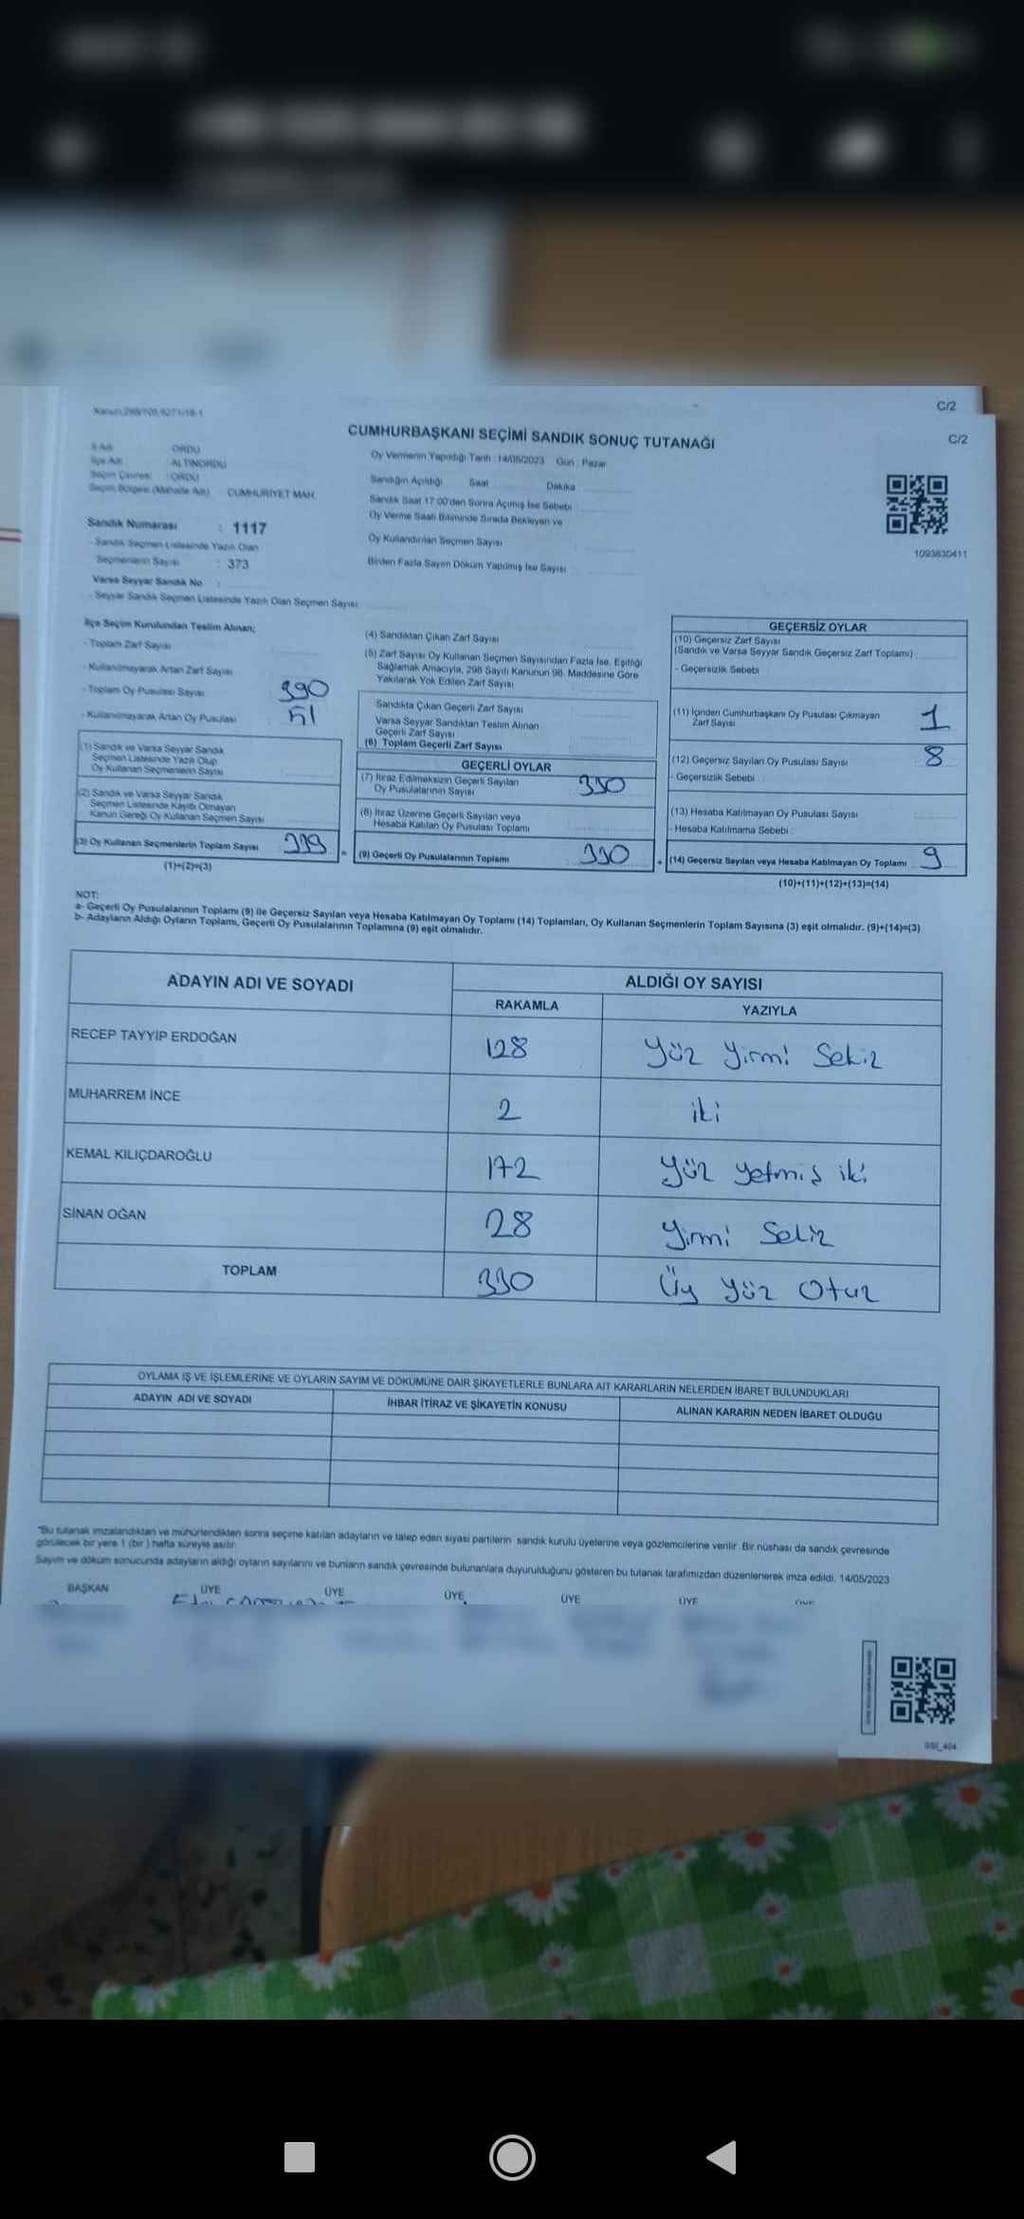 C/2
C/2
CUMHURBAŞKANI SEÇİMİ SANDIK SONUÇ TUTANAĞI
İli Adı ORDU
İlçe Adı ALTINORDU
Seçim Çevresi : ORDU
Seçim Bölgesi (Mahalle Adı) CUMHURİYET MAH.
Sandık Numarası : 1117
- Sandık Seçmen Listesinde Yazılı Olan
Seçmenlerin Sayısı : 373
Varsa Seyyar Sandık No :
- Seyyar Sandık Seçmen Listesinde Yazılı Olan Seçmen Sayısı
Oy Vermenin Yapıldığı Tarih : 14/05/2023 Gün : Pazar
Sandığın Açıldığı Saat Dakika
Sandık Saat 17:00'den Sonra Açılmış İse Sebebi
Oy Verme Saati Bitiminde Sırada Bekleyen ve
Oy Kullandırılan Seçmen Sayısı
Birden Fazla Sayım Döküm Yapılmış İse Sayısı
1093630411
İlçe Seçim Kurulundan Teslim Alınan;
- Toplam Zarf Sayısı
- Kullanılmayarak Artan Zarf Sayısı
- Toplam Oy Pusulası Sayısı 390
- Kullanılmayarak Artan Oy Pusulası 51
(1) Sandık ve Varsa Seyyar Sandık
Seçmen Listesinde Yazılı Olup
Oy Kullanan Seçmenlerin Sayısı
(2) Sandık ve Varsa Seyyar Sandık
Seçmen Listesinde Kayıtlı Olmayan
Kanun Gereği Oy Kullanan Seçmen Sayısı
(3) Oy Kullanan Seçmenlerin Toplam Sayısı 339
(1)+(2)=(3)
(4) Sandıktan Çıkan Zarf Sayısı
(5) Zarf Sayısı Oy Kullanan Seçmen Sayısından Fazla İse, Eşitliği
Sağlamak Amacıyla, 298 Sayılı Kanunun 98. Maddesine Göre
Yakılarak Yok Edilen Zarf Sayısı
Sandıkta Çıkan Geçerli Zarf Sayısı
Varsa Seyyar Sandıktan Teslim Alınan
Geçerli Zarf Sayısı
(6) Toplam Geçerli Zarf Sayısı
GEÇERLİ OYLAR
(7) İtiraz Edilmeksizin Geçerli Sayılan
Oy Pusulalarının Sayısı 330
(8) İtiraz Üzerine Geçerli Sayılan veya
Hesaba Katılan Oy Pusulası Toplamı
= (9) Geçerli Oy Pusulalarının Toplamı 330
GEÇERSİZ OYLAR
(10) Geçersiz Zarf Sayısı
(Sandık ve Varsa Seyyar Sandık Geçersiz Zarf Toplamı)
- Geçersizlik Sebebi
(11) İçinden Cumhurbaşkanı Oy Pusulası Çıkmayan
Zarf Sayısı 1
(12) Geçersiz Sayılan Oy Pusulası Sayısı 8
- Geçersizlik Sebebi
(13) Hesaba Katılmayan Oy Pusulası Sayısı
- Hesaba Katılmama Sebebi :
+ (14) Geçersiz Sayılan veya Hesaba Katılmayan Oy Toplamı 9
(10)+(11)+(12)+(13)=(14)
NOT:
a- Geçerli Oy Pusulalarının Toplamı (9) ile Geçersiz Sayılan veya Hesaba Katılmayan Oy Toplamı (14) Toplamları, Oy Kullanan Seçmenlerin Toplam Sayısına (3) eşit olmalıdır. (9)+(14)=(3)
b- Adayların Aldığı Oyların Toplamı, Geçerli Oy Pusulalarının Toplamına (9) eşit olmalıdır.
ADAYIN ADI VE SOYADI ALDIĞI OY SAYISI
RAKAMLA YAZIYLA
RECEP TAYYİP ERDOĞAN 128 Yüz Yirmi Sekiz
MUHARREM İNCE 2 iki
KEMAL KILIÇDAROĞLU 172 Yüz yetmiş iki
SİNAN OĞAN 28 Yirmi Sekiz
TOPLAM 330 Üç Yüz Otuz
OYLAMA İŞ VE İŞLEMLERİNE VE OYLARIN SAYIM VE DÖKÜMÜNE DAİR ŞİKAYETLERLE BUNLARA AİT KARARLARIN NELERDEN İBARET BULUNDUKLARI
ADAYIN ADI VE SOYADI İHBAR İTİRAZ VE ŞİKAYETİN KONUSU ALINAN KARARIN NEDEN İBARET OLDUĞU
"Bu tutanak imzalandıktan ve mühürlendikten sonra seçime katılan adayların ve talep eden siyasi partilerin sandık kurulu üyelerine veya gözlemcilerine verilir. Bir nüshası da sandık çevresinde
görülecek bir yere 1 (bir) hafta süreyle asılır.
Sayım ve döküm sonucunda adayların aldığı oyların sayılarını ve bunların sandık çevresinde bulunanlara duyurulduğunu gösteren bu tutanak tarafımızdan düzenlenerek imza edildi. 14/05/2023
BAŞKAN ÜYE ÜYE ÜYE ÜYE ÜYE ÜYE